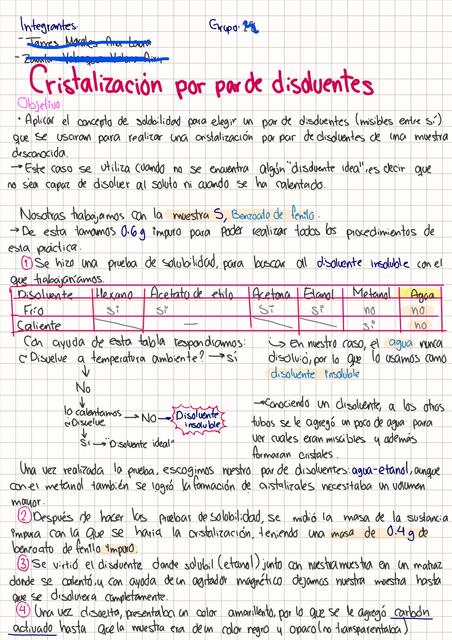 Integrantes.
Grupo: 29
Cristalización por par de disolventes
Objetivo
• Aplicar el concepto de solubilidad para elegir un par de disolventes (misibles entre sí)
que se usaran para realizar una cristalización por par de disolventes de una muestra
desconocida.
→ Este caso se utiliza cuando no se encuentra algún "disolvente idea", es decir que
no sea capaz de disolver al soluto ni cuando se ha calentado.
Nosotras trabajamos con la muestra S, Benzoato de fenilo.
→ De esta tomamos 0.6g impuro para poder realizar todos los procedimientos de
esta práctica.
① Se hizo una prueba de solubilidad, para buscar al disolvente insoluble con el
que trabajaríamos.
Disolvente | Hexano | Acetato de etilo | Acetona | Etanol | Metanol | Agua
Frío | sí | sí | sí | sí | no | no
Caliente | | — | | | sí | no
Con ayuda de esta tabla respondíamos:
¿Disuelve a temperatura ambiente? → Sí
↓
No
↓
lo calentamos → No → Disolvente insoluble
¿Disuelve
↓
Sí → "Disolvente ideal"
↳ En nuestro caso, el agua nunca
disolvió, por lo que lo usamos como
disolvente insoluble
→ Conociendo un disolvente, a los otros
tubos se le agregó un poco de agua para
ver cuales eran miscibles y además
formaran cristales.
Una vez realizada la prueba, escogimos nuestro par de disolventes: agua-etanol, aunque
con el metanol también se logró la formación de cristales necesitaba un volumen
mayor.
② Después de hacer las pruebas de solobilidad, se midió la masa de la sustancia
impura con la que se haría la cristalización, teniendo una masa de 0.4 g de
benzoato de fenilo impuro.
③ Se virtió el disolvente donde solubil (etanol) junto con nuestra muestra en un matraz
donde se calentó, y con ayuda de un agitador magnético dejamos nuestra muestra hasta
que se disolviera completamente.
④ Una vez disuelta, presentaba un color amarillento, por lo que se le agregó carbón
activado hasta que la muestra era de un color negro y opaco (no transparentaba)